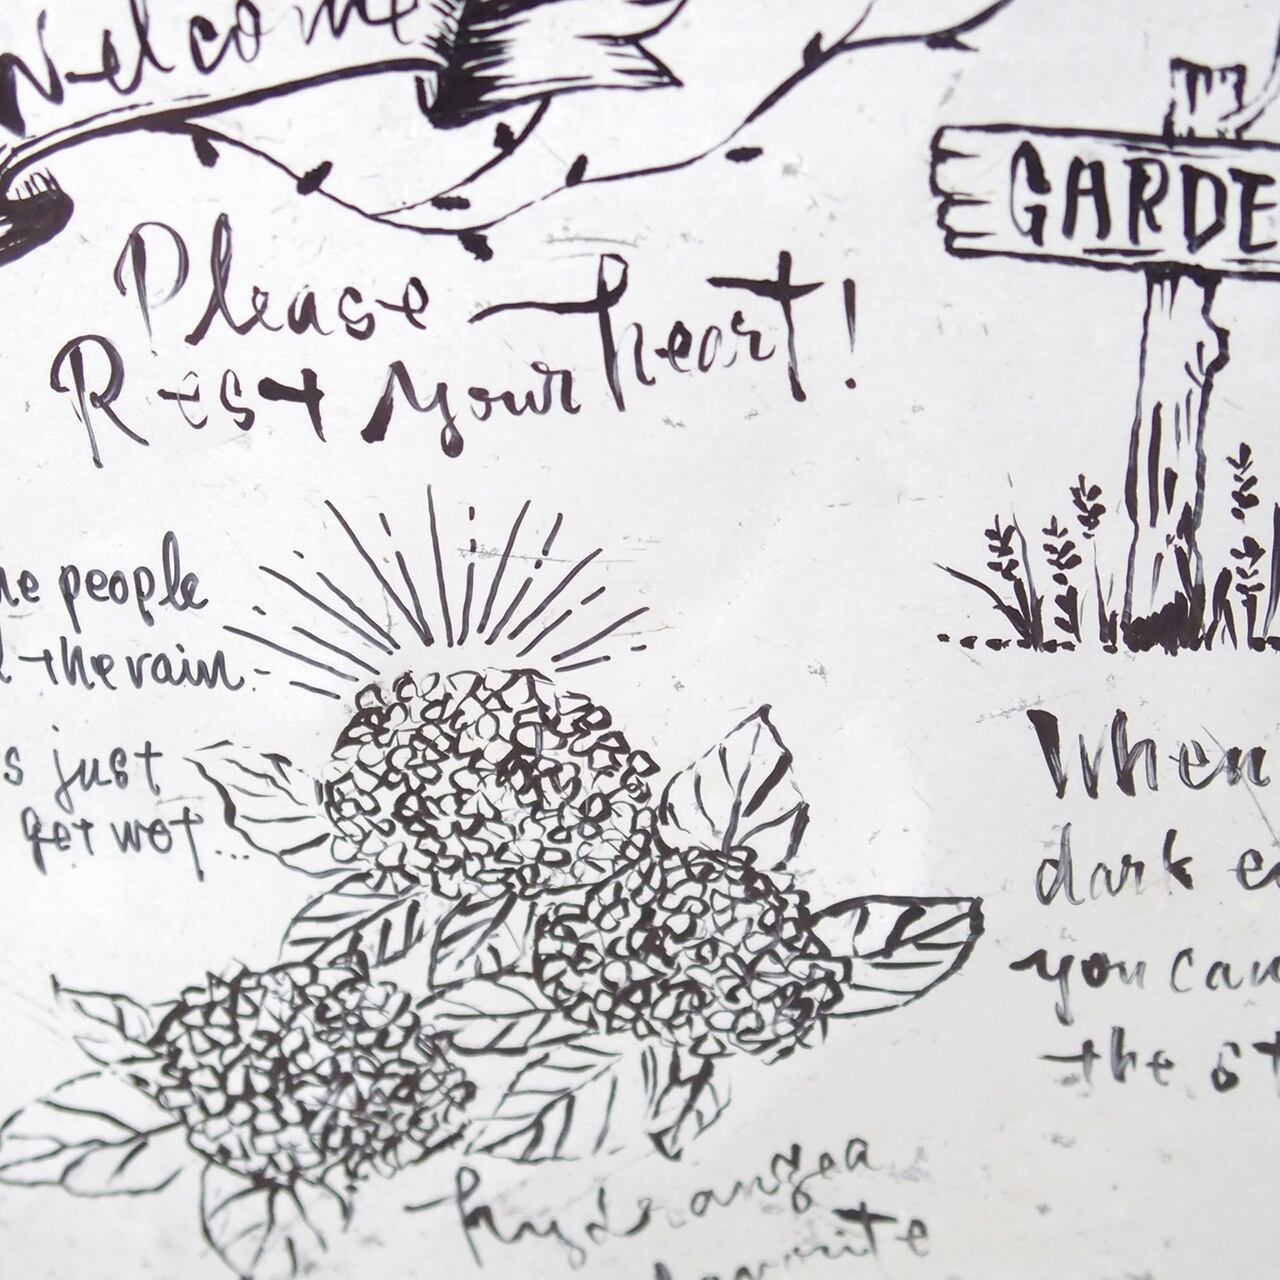 Welcome
GARDE
Please
Rest your heart!
people
the rain.
s just
get wet...
When
dark
you can
the st
hydrangea